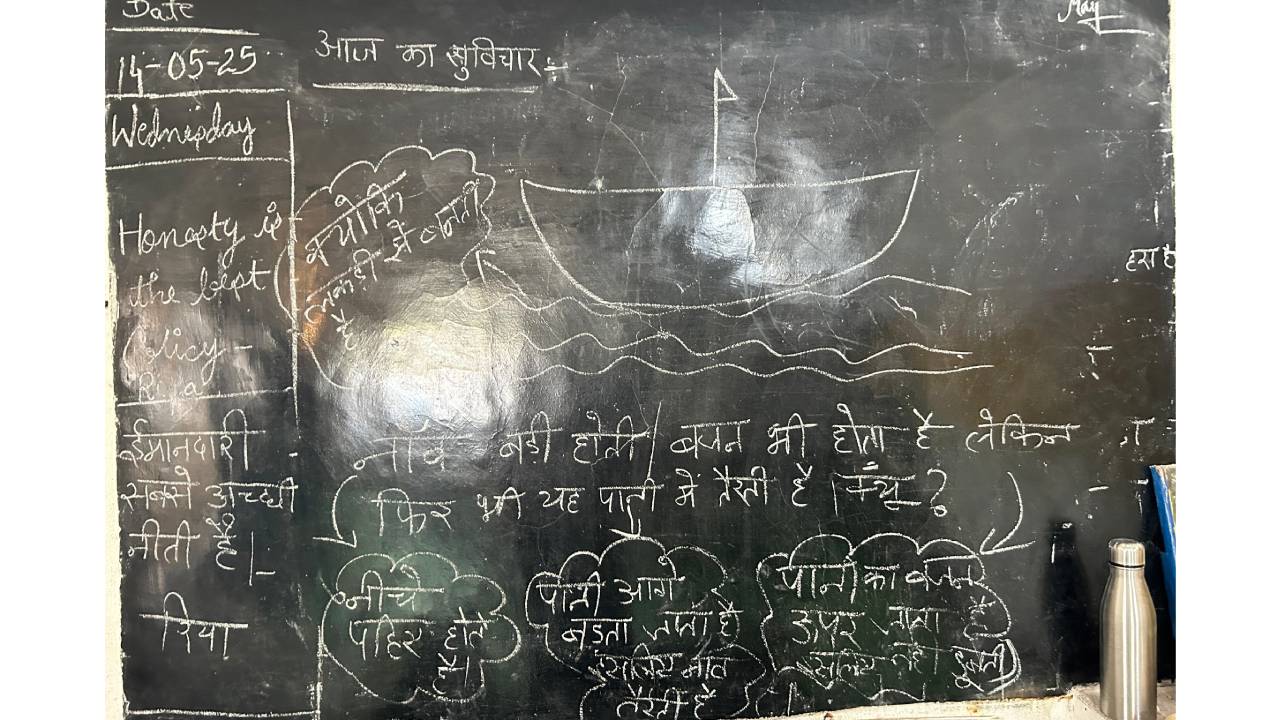 Date
14-05-25
Wednesday
Honesty is
the best
Policy -
Riya
ईमानदारी
सबसे अच्छी
नीती है।
रिया
May
आज का सुविचार :-
क्योकि
लकडी से बनती
है
नाव बड़ी होती वजन भी होता है लेकिन
फिर भी यह पानी में तैरती है। क्यू ?
नीचे
पहिए होते
है।
पानी आगे
बढ़ता जाता है
इसलिए नाव
तैरती है
पानी का वजन
ऊपर जाता है
इसलिए नही डूबती